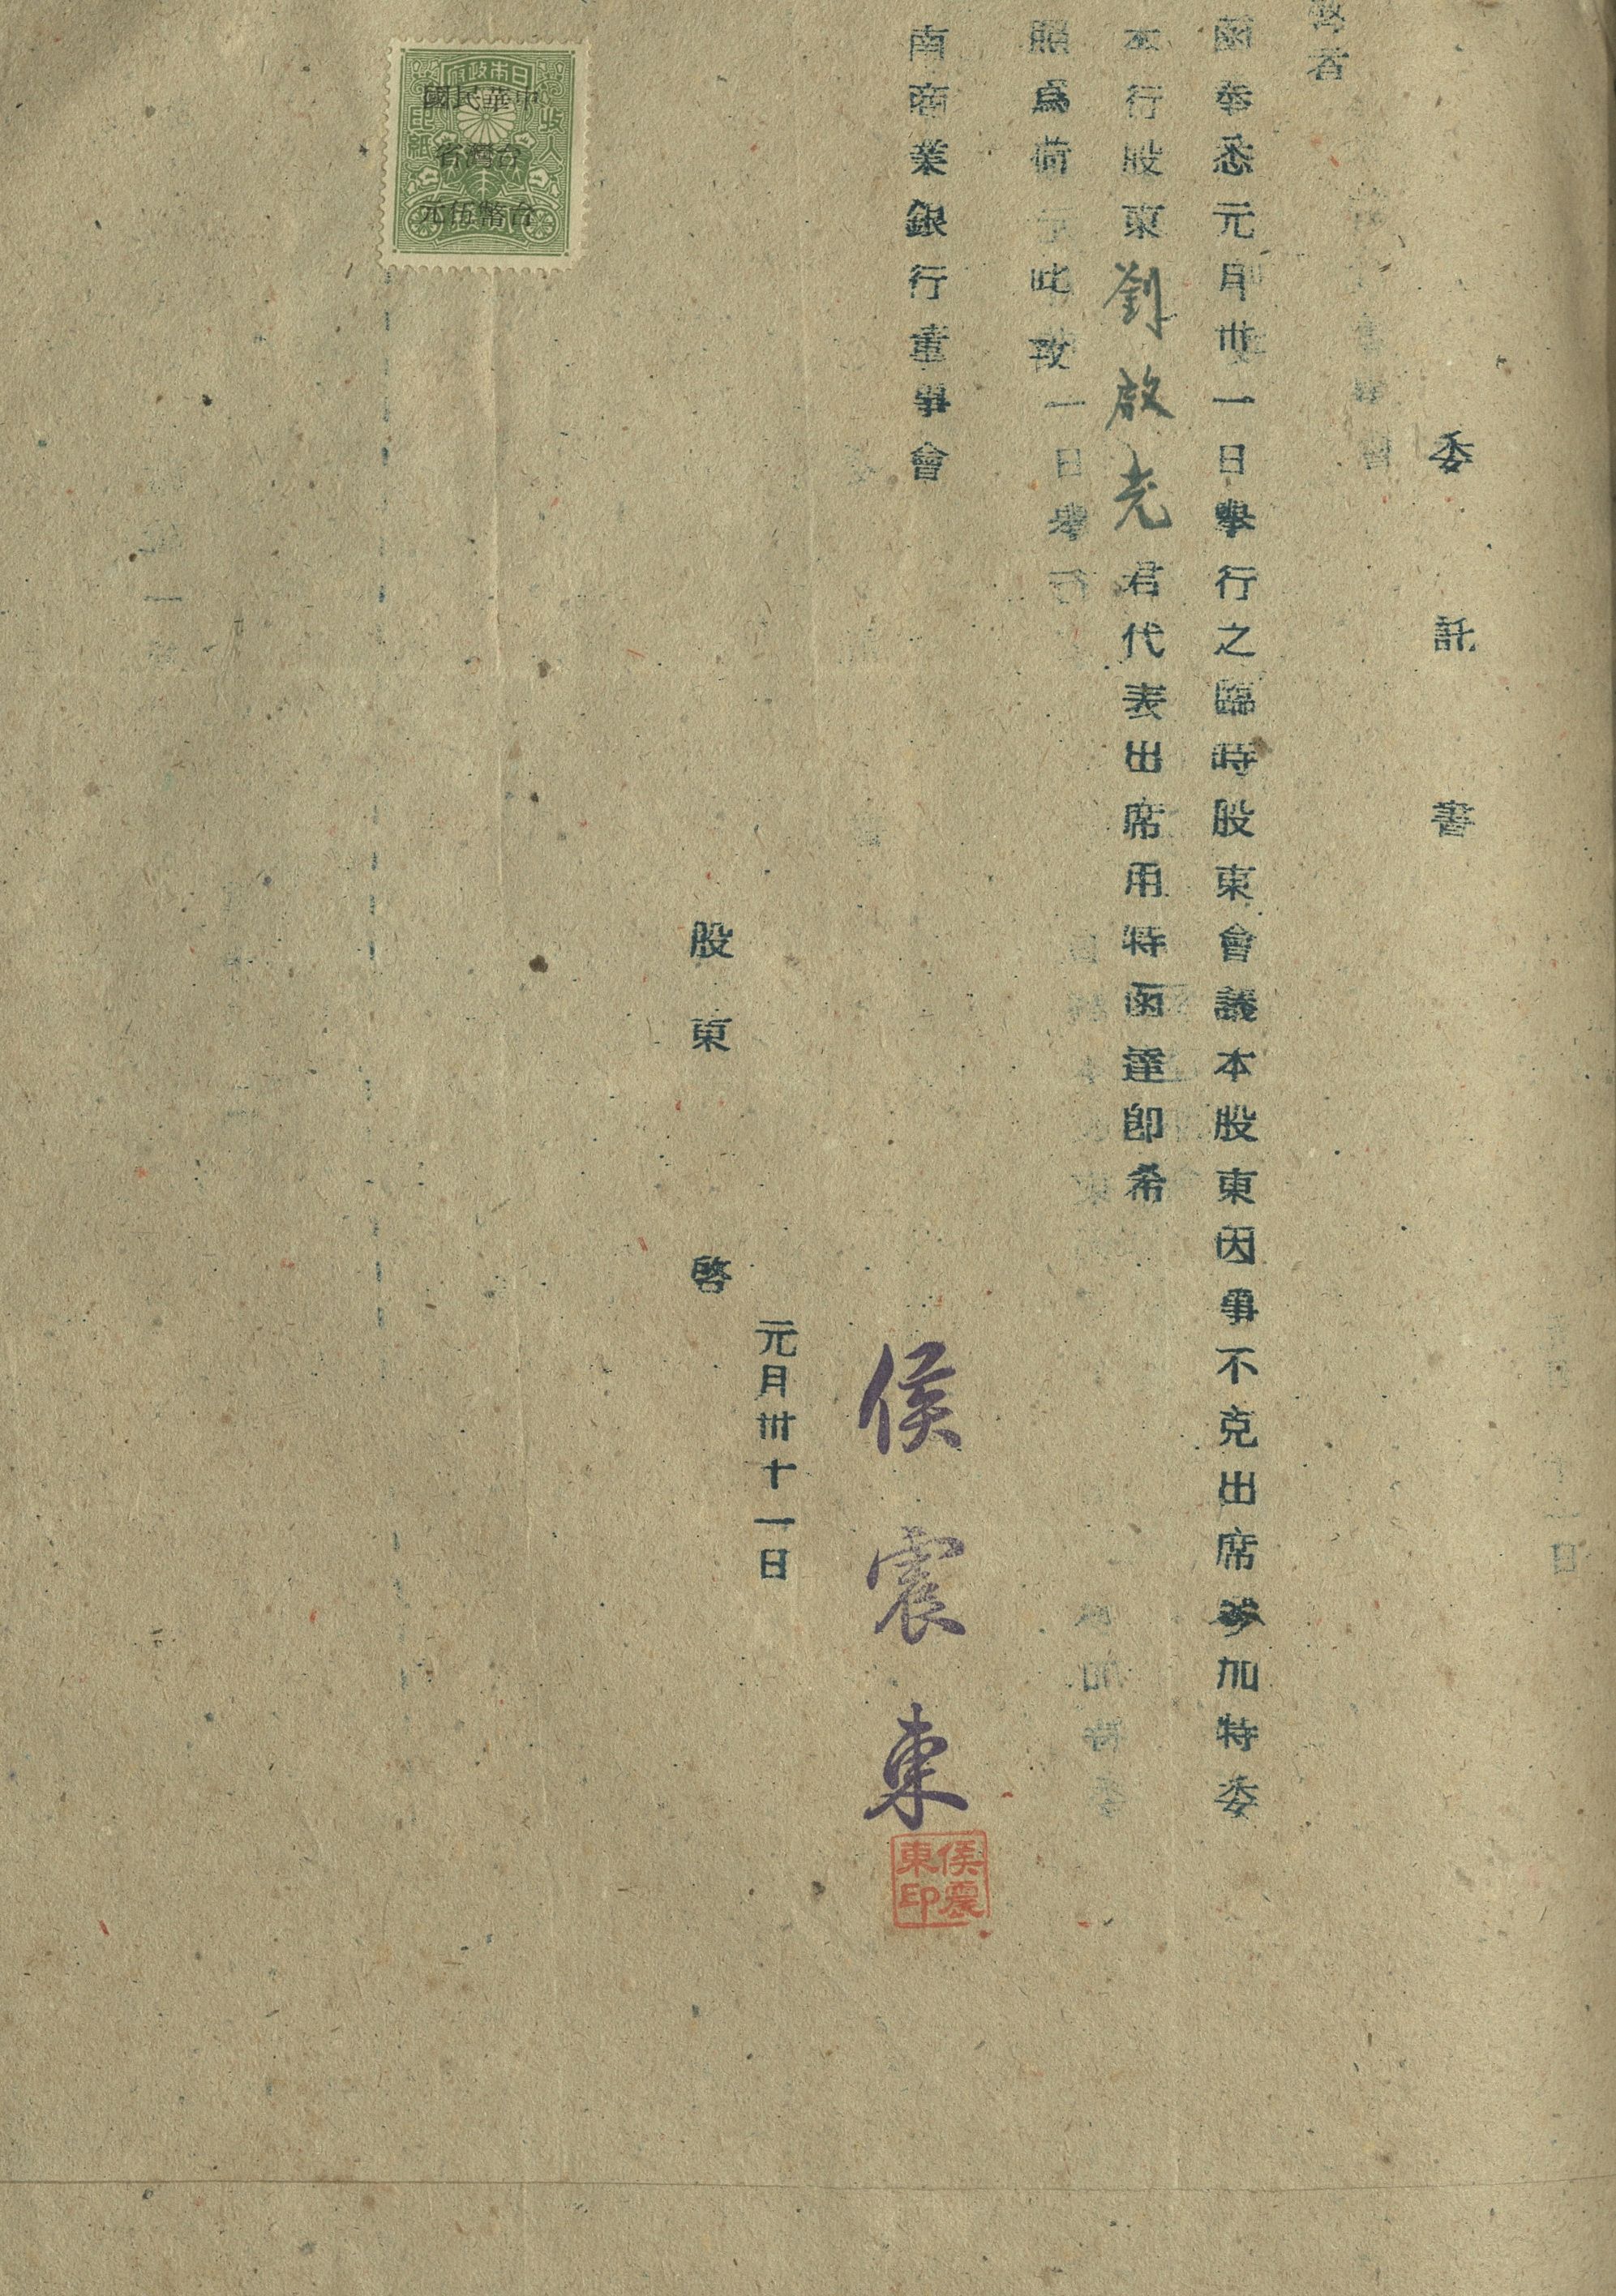 委託書
敬者
函奉悉元月卅一日舉行之臨時股東會議本股東因事不克出席參加特委
本行股東劉啟光君代表出席用特函達卽希
照爲荷此致
南商業銀行董事會
侯震東
侯震東印
元月卅十一日
股東 啓
日本政府
收入印紙
中華民國
台灣省
台幣伍元